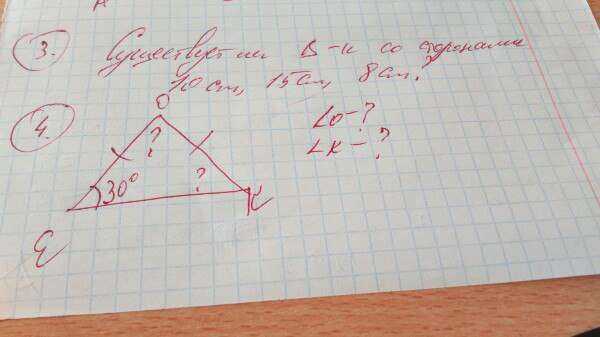 3. Существует ли Δ-к со сторонами
10 см, 15 см, 8 см?
4.
O
∠O - ?
?
∠K - ?
30°
?
E
K